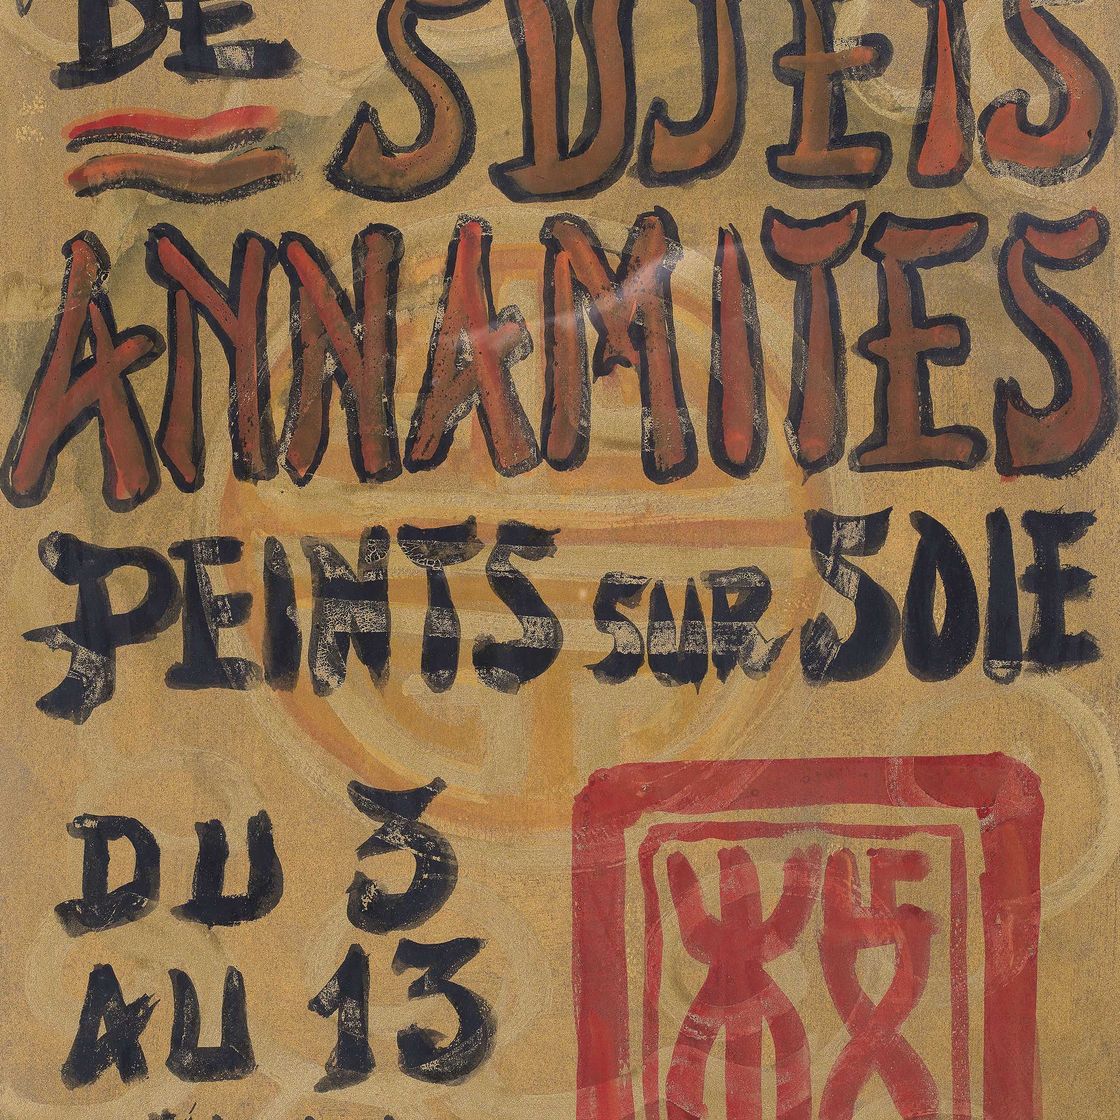 DE SUJETS
ANNAMITES
PEINTS SUR SOIE
DU 3
AU 13